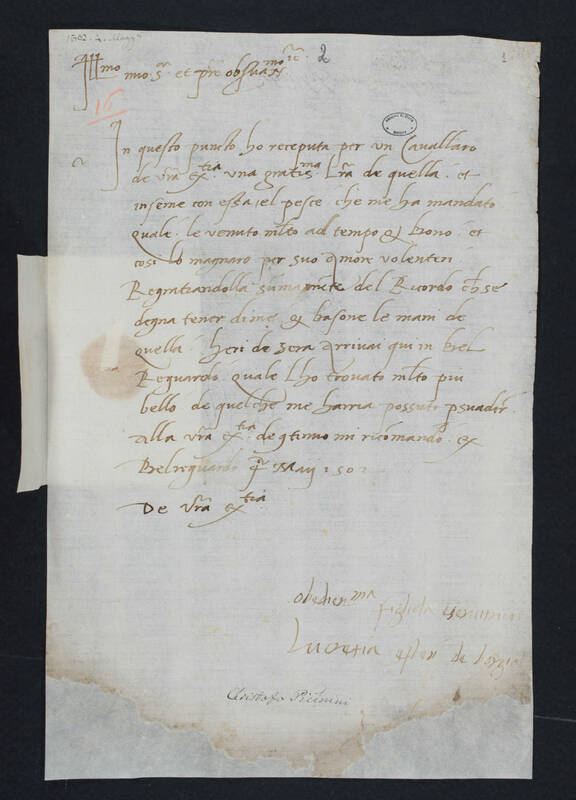 1502. 4. Magg.
2
1
Ill.mo mio S.r et p̃re obser.mo
16
In questo puncto ho receputa per un Cavallaro
de v̄ra ex.tia una gratis.ma L̄ra de quella. et
inseme con essa, el pesce che me ha mandato
quale. le venuto m̄lto ad tempo & bono. et
cosi lo magnaro per suo Amore volenteri
Regratiandolla sumam̄ete del Ricordo ch̄ se
degna tener di me & basone le mani de
quella. Heri de sera Arrivai qui in Bel
Reguardo quale Lho trovato m̄lto piu
bello de quelche me harria possuto p̄suadir.
Alla v̄ra ex.tia de 9tinuo mi ricōmando. ex
Belreguardo Maij 1502
De v̄ra ex.tia
obedien.ma figliola
Lucretia esten de borgia